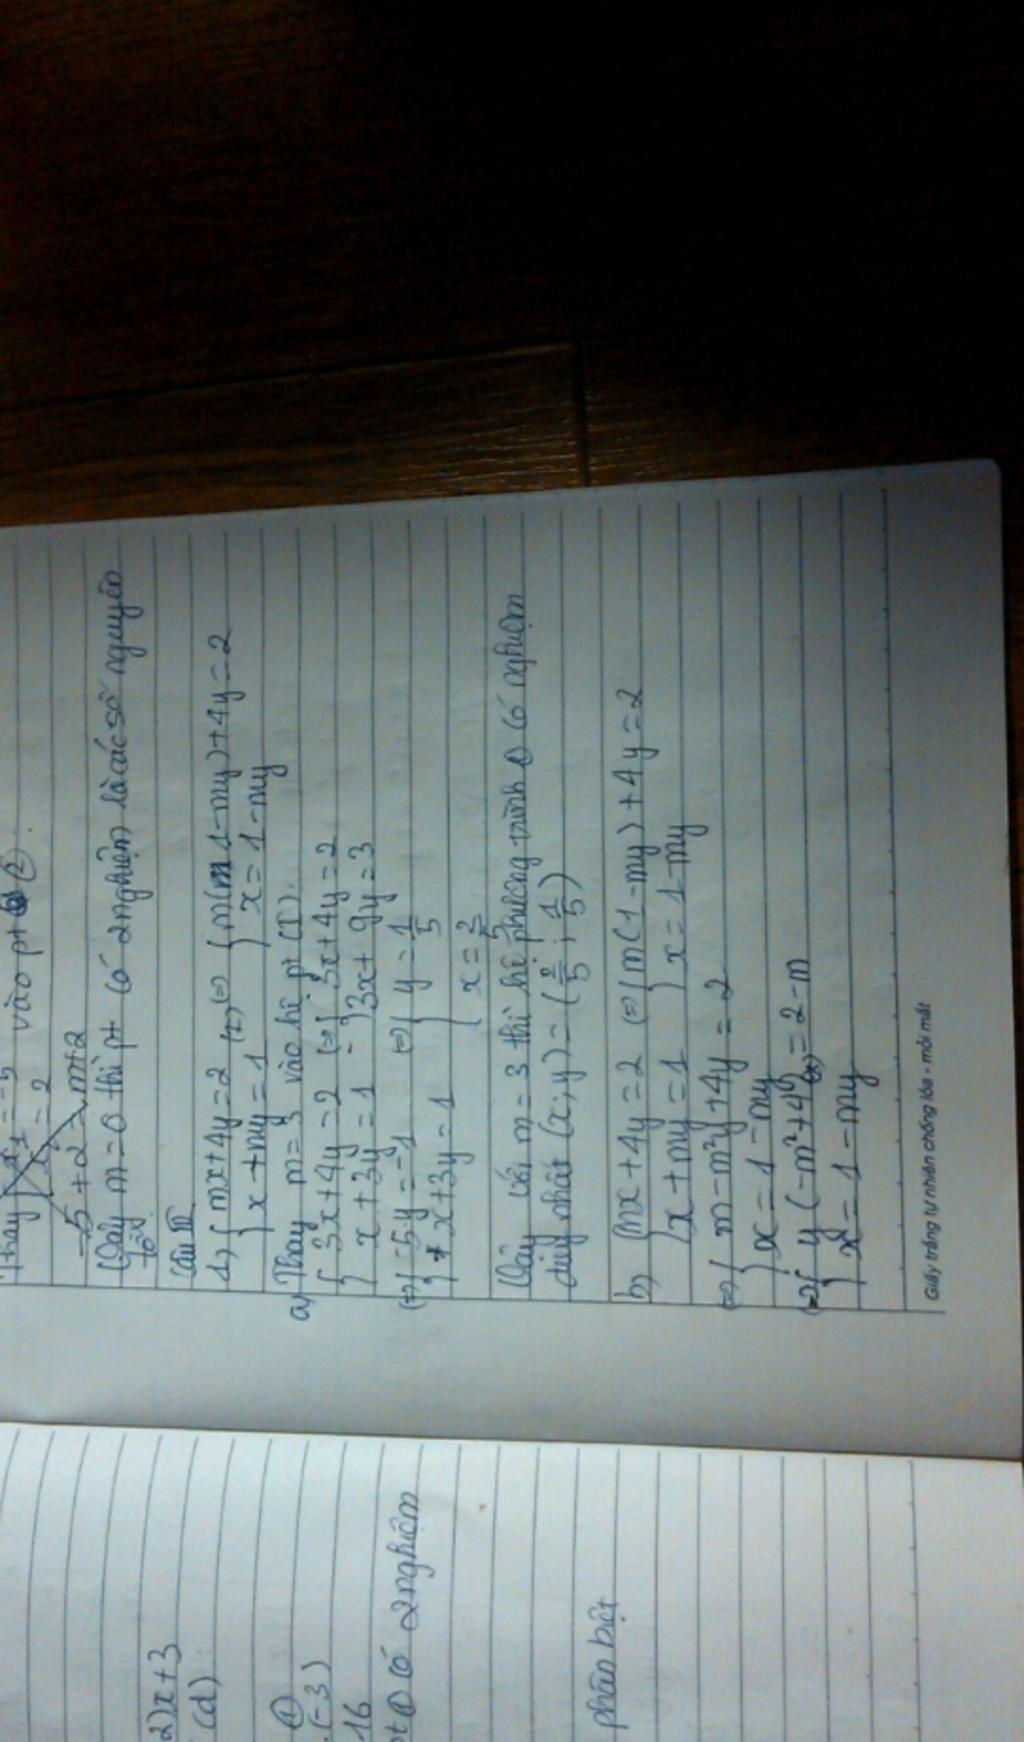 Thay x₁ = -5 vào pt (2).
x₂ = 2
-5 + 2 = m+2
Vậy m = 0 thì pt có 2 nghiệm là các số nguyên
Câu III
1, { mx + 4y = 2 (1) (=) { m(1 - my) + 4y = 2
{ x + my = 1 { x = 1 - my
a, Thay m = 3 vào hệ pt (I).
{ 3x + 4y = 2 (=) { 3x + 4y = 2
{ x + 3y = 1 - { 3x + 9y = 3
(=) { -5y = -1 (=) { y = 1/5
{ x + 3y = 1 { x = 2/5
Vậy với m = 3 thì hệ phương trình (1) có nghiệm
duy nhất (x; y) = (2/5; 1/5)
b, { mx + 4y = 2 (=) { m(1 - my) + 4y = 2
{ x + my = 1 { x = 1 - my
(=) { m - m²y + 4y = 2
{ x = 1 - my
(=) { y(-m² + 4) = 2 - m
{ x = 1 - my
Giấy trắng tự nhiên chống lóa - mỏi mắt
2)x + 3
(d)
(1)
.(-3)
16
pt (1) có 2 nghiệm
phân biệt